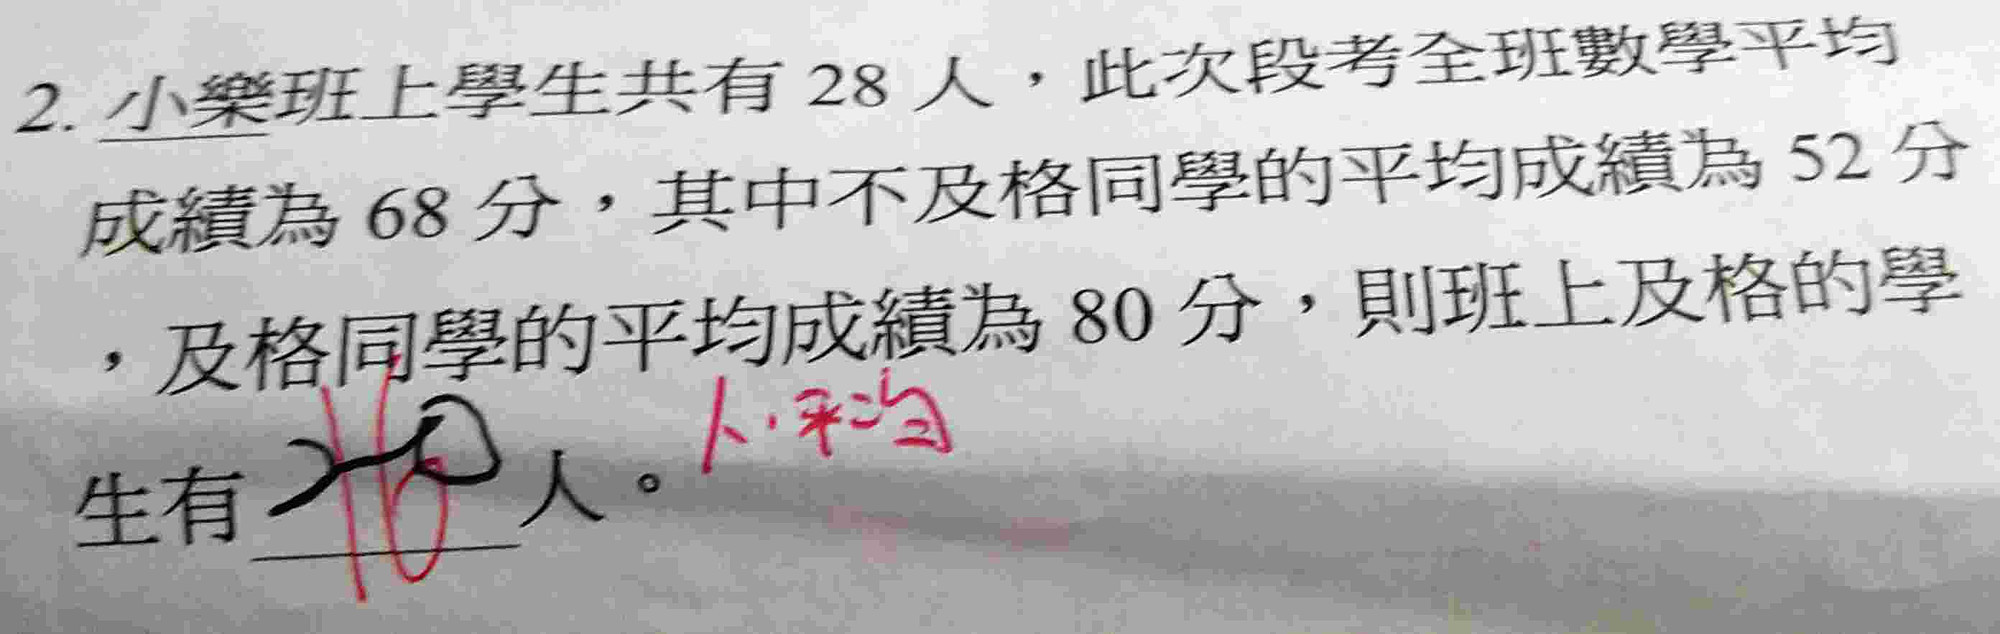 2. 小樂班上學生共有 28 人，此次段考全班數學平均
成績為 68 分，其中不及格同學的平均成績為 52 分
，及格同學的平均成績為 80 分，則班上及格的學
生有 16 人。
平均